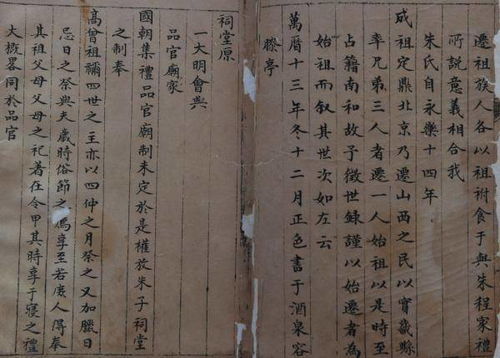 遷祖族人各以祖祔食于與朱程家禮
所說意義相合我
朱氏自永樂十四年
成祖定鼎北京乃遷山西之民以實畿縣
率凡弟三人者遷一人始祖以是時至
占籍南和故予徵世錄謹以始遷者為
始祖而叙其世次如左云
萬曆十三年冬十二月正色書于酒泉容
膝亭
祠堂原
一大明會典
品官廟家
國朝集禮品官廟制未定於是權放朱子祠堂
之制奉
高曾祖禰四世之主亦以四仲之月祭之又加臘日
忌日之祭與夫歲時俗節之薦享至若庶人得奉
其祖父母父母之祀著在令甲其時享于寢之禮
大概畧同於品官